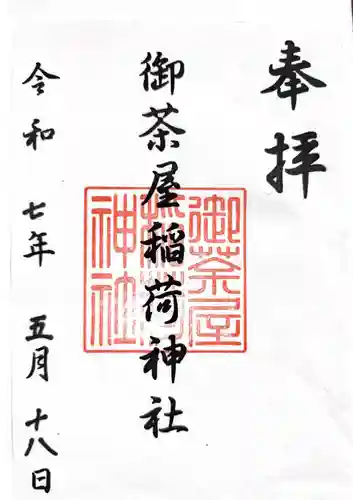 奉拝
御茶屋稲荷神社
御茶屋
稲荷
神社
令和七年五月十八日